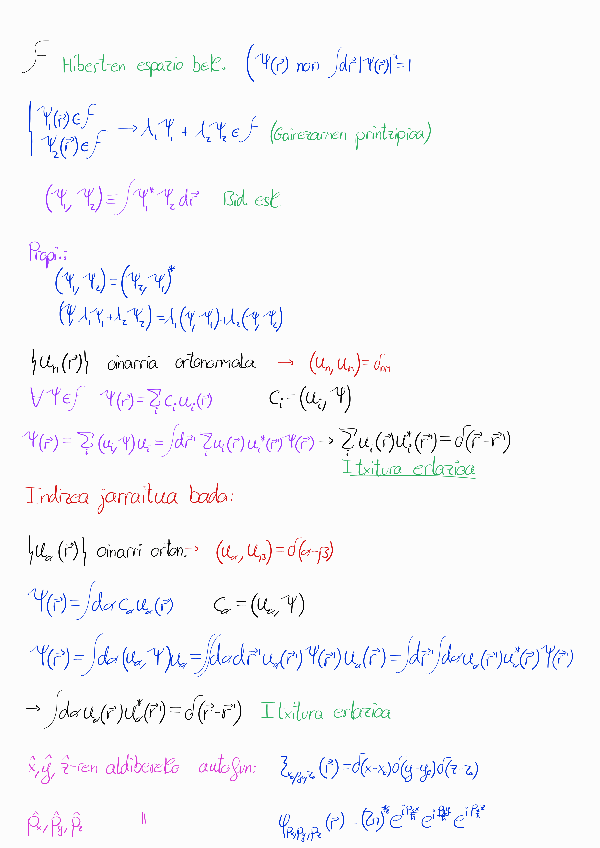 F Hilbert-en espazio bek. (Ψ(r⃗) non ∫dr⃗|Ψ(r⃗)|²=1
Ψ₁(r⃗)∈F
Ψ₂(r⃗)∈F → λ₁Ψ₁ + λ₂Ψ₂ ∈ F (Gainezarmen printzipioa)
(Ψ₁, Ψ₂) ≡ ∫Ψ₁* Ψ₂ dr⃗ Bid esk
Propi.:
(Ψ₁, Ψ₂) = (Ψ₂, Ψ₁)*
(Ψ, λ₁Ψ₁+λ₂Ψ₂) = λ₁(Ψ, Ψ₁)+λ₂(Ψ, Ψ₂)
{uₙ(r⃗)} oinarria ortonormala → (uₙ, uₘ) = δₙₘ
∀Ψ∈F Ψ(r⃗) = Σᵢ cᵢ uᵢ(r⃗) cᵢ = (uᵢ, Ψ)
Ψ(r⃗) = Σᵢ (uᵢ, Ψ)uᵢ = ∫dr⃗' Σᵢ uᵢ(r⃗)uᵢ*(r⃗')Ψ(r⃗') → Σᵢ uᵢ(r⃗)uᵢ*(r⃗') = δ(r⃗-r⃗')
Itxitura erlazioa
Indizea jarraitua bada:
{u_α(r⃗)} oinarri orton. → (u_α, u_β) = δ(α-β)
Ψ(r⃗) = ∫dα c_α u_α(r⃗) c_α = (u_α, Ψ)
Ψ(r⃗) = ∫dα (u_α, Ψ)u_α = ∫∫dαdr⃗' u_α(r⃗')Ψ(r⃗')u_α(r⃗) = ∫dr⃗'∫dα u_α(r⃗)u_α*(r⃗')Ψ(r⃗')
→ ∫dα u_α(r⃗)u_α*(r⃗') = δ(r⃗-r⃗') Itxitura erlazioa
x̂, ŷ, ẑ-ren aldibereko autofun: ξ_{x₀,y₀,z₀}(r⃗) = δ(x-x₀)δ(y-y₀)δ(z-z₀)
p̂ₓ, p̂_y, p̂_z "